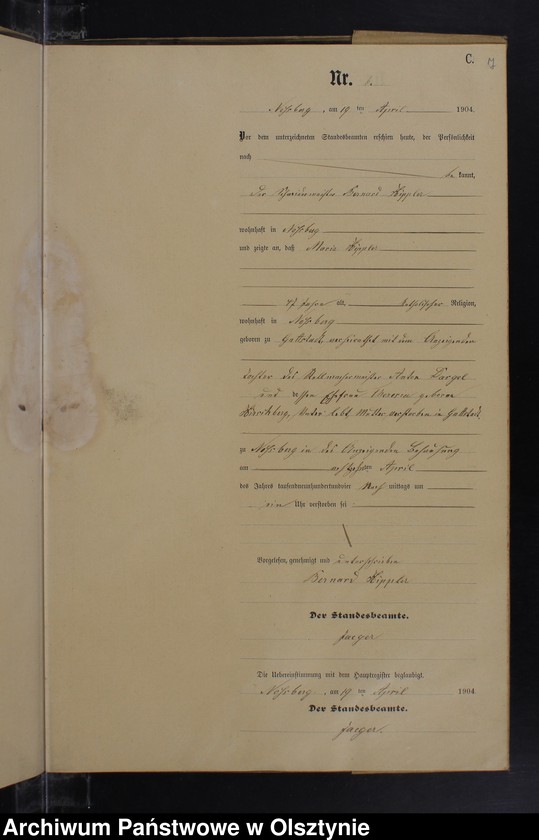 C.
Nr.
Noßberg, am 19 ten April 1904.
Vor dem unterzeichneten Standesbeamten erschien heute, der Persönlichkeit
nach
be kannt,
der Bernard
wohnhaft in Noßberg
und zeigte an, daß Maria
47 Jahre alt, katholischer Religion,
wohnhaft in Noßberg
geboren zu verheirathet mit dem Anzeigenden
Tochter des Anton
und dessen Ehefrau geborene
Vater lebt, Mutter verstorben in
zu Noßberg in des Anzeigenden Behausung
am achtzehnten April
des Jahres tausendneunhundertundvier Nach mittags um
ein Uhr verstorben sei
Vorgelesen, genehmigt und unterschrieben
Bernard
Der Standesbeamte.
Jaeger
Die Uebereinstimmung mit dem Hauptregister beglaubigt.
Noßberg, am 19 ten April 1904.
Der Standesbeamte.
Jaeger.
Archiwum Państwowe w Olsztynie